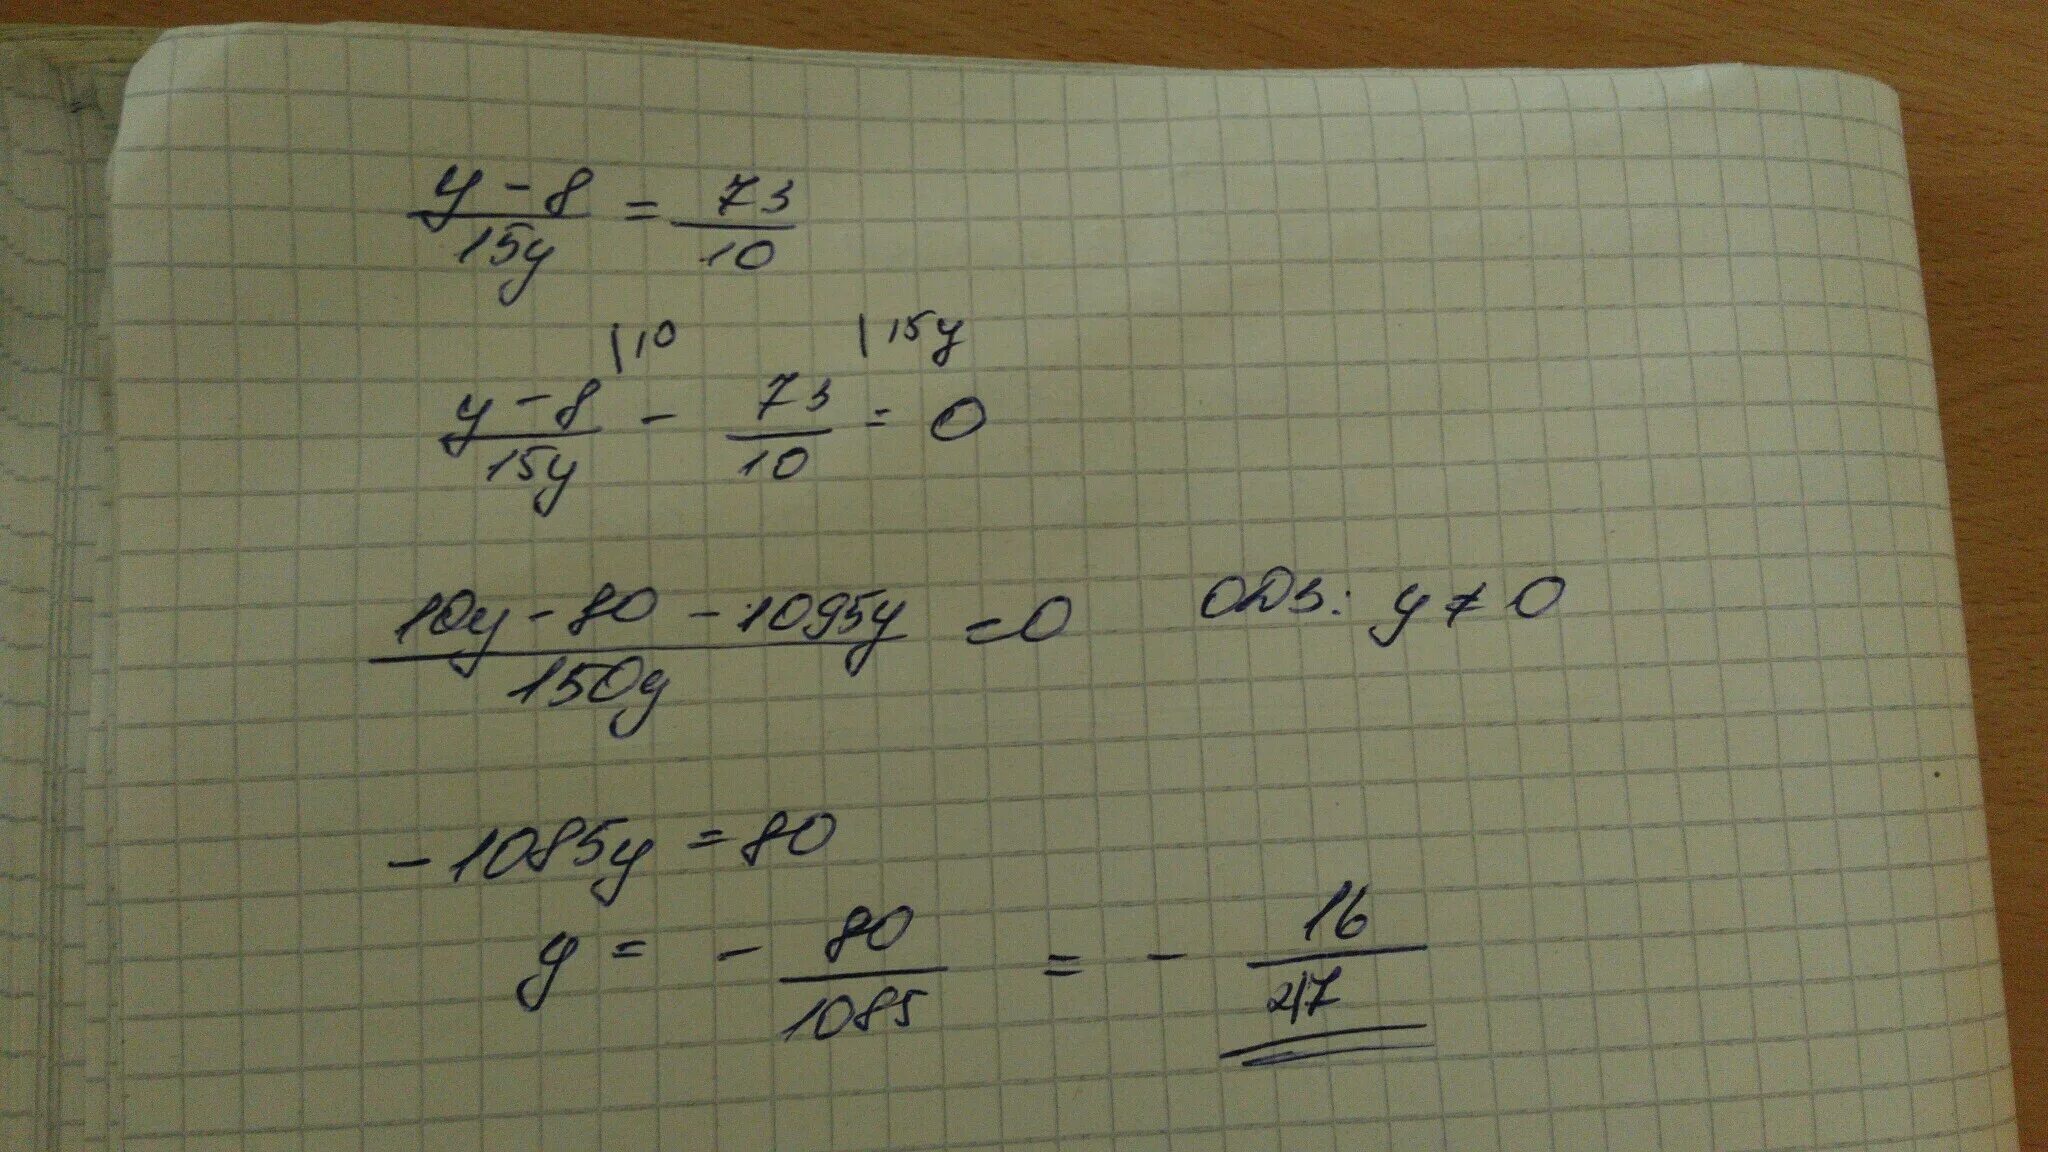 y - 8 / 15y = 73 / 10
y - 8 / 15y |10 - 73 / 10 |15y = 0
10y - 80 - 1095y / 150y = 0 ОДЗ: y ≠ 0
- 1085y = 80
y = - 80 / 1085 = - 16 / 217